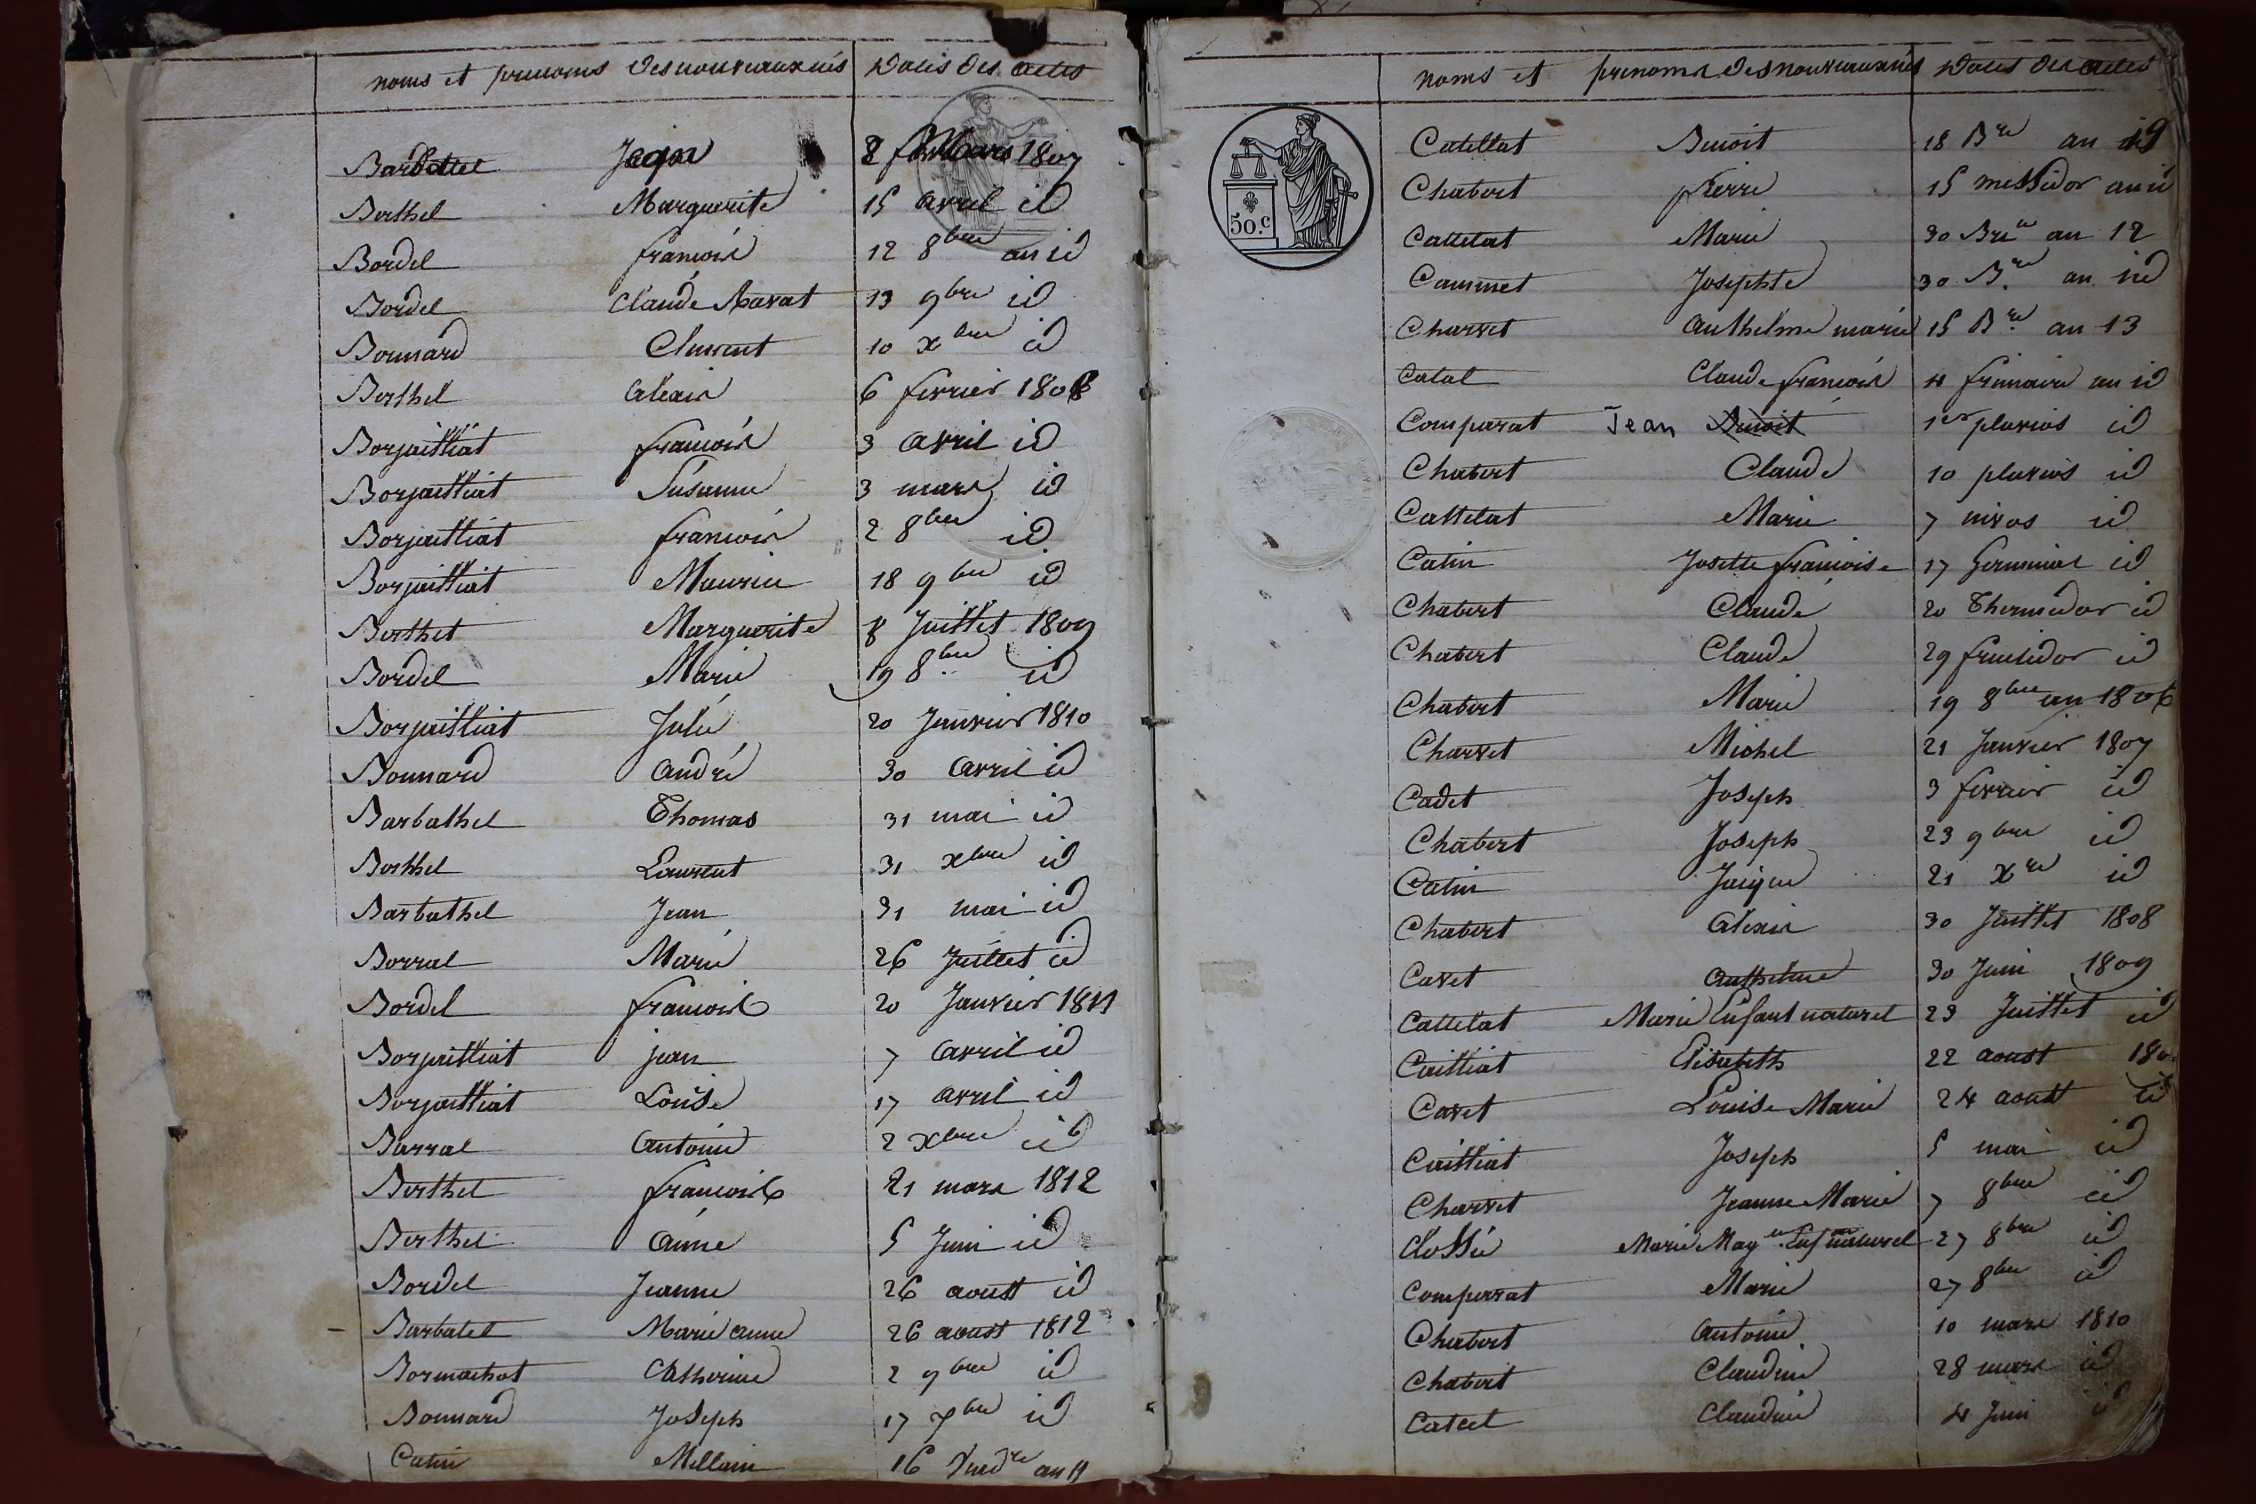 noms et prenoms des nouveaux nés Dates des actes
Jaques 8 Mars 1807
Berthel Marguerite 15 avril id
Bordel francois 12 8bre an id
Bordel Claude Ravat 13 9bre id
Bonnard Clement 10 xbre id
Berthel alexis 6 fevrier 1808
Borjailliat francois 3 avril id
Borjailliat Susanne 3 mars id
Borjailliat francois 2 8bre id
Borjailliat Maurice 18 9bre id
Berthet Marguerite 8 Juillet 1809
Bordel Marie 19 8bre id
Borjailliat Julie 20 Janvier 1810
Bonnard andré 30 avril id
Barbathel Thomas 31 mai id
Berthel Laurent 31 xbre id
Barbathel Jean 31 mai id
Borral Marie 26 Juillet id
Bordel francois 20 Janvier 1811
Borjailliat jean 7 avril id
Borjailliat Louise 17 avril id
Barral antoine 2 xbre id
Berthel francois 21 mars 1812
Berthel anne 5 Juin id
Bordel Jeanne 26 aoust id
Barbatel Marie anne 26 aoust 1812
Bormachot Catherine 2 9bre id
Bonnard Joseph 17 7bre id
Catin Mellanie 16 an 11
noms et prenoms des nouveaux nés Dates des actes
50.c
Catellat Benoit 18 Bre an id
Chabert pierre 15 messidor an id
Cattelat Marie 30 Bre an 12
Cammet Josephte 30 Bre an id
Charvet anthelme marie 15 Bre an 13
Catal Claude francois 11 frimaire an id
Comparat Jean Benoit 1er pluvios id
Chabert Claude 10 pluvios id
Cattelat Marie 7 nivos id
Catin Josette francoise 17 Germinal id
Chabert Claude 20 Thermidor id
Chabert Claude 29 fructidor id
Chabert Marie 19 8bre an 1806
Charvet Michel 21 Janvier 1807
Cadet Joseph 3 fevrier id
Chabert Joseph 23 9bre id
Catin Jaique 21 Xre id
Chabert alexis 30 Juillet 1808
Cavet anthelme 30 Juin 1809
Cattelat Marie Enfant naturel 23 Juillet id
Cailliat Elisabeth 22 aoust
Cavet Louise Marie 24 aoust id
Cailliat Joseph 5 mai id
Charvet Jeanne Marie 7 8bre id
Clossée Marie Magne Enf naturel 27 8bre id
Comparrat Marie 27 8bre id
Chabert antoine 10 mars 1810
Chabert Claudine 28 mars id
Catcel Claudine 4 Juin id